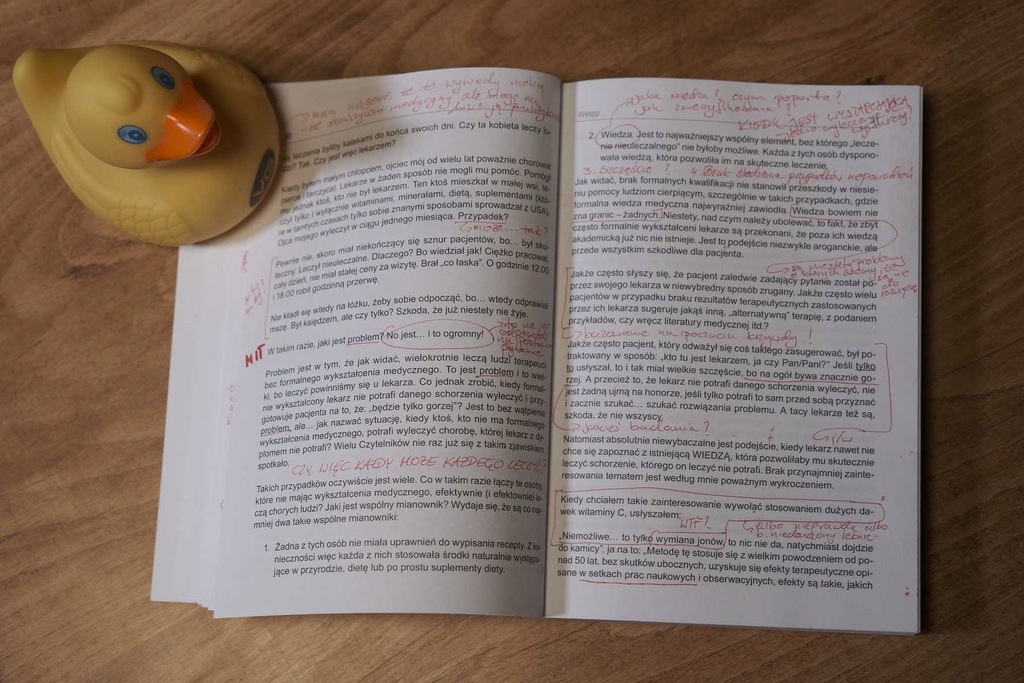 że to wywody
leczenia byliby kalekami do końca swoich dni. Czy ta kobieta leczy lu-
dzi? Tak. Czy jest więc lekarzem?
Kiedy byłem małym chłopcem, ojciec mój od wielu lat poważnie chorował
(nerce i tarczyca). Lekarze w żaden sposób nie mogli mu pomóc. Pomógł
mu jednak ktoś, kto nie był lekarzem. Ten ktoś mieszkał w małej wsi, le-
czył tylko i wyłącznie witaminami, minerałami, dietą, suplementami (któ-
re w tamtych czasach tylko sobie znanymi sposobami sprowadzał z USA).
Ojca mojego wyleczył w ciągu jednego miesiąca. Przypadek?
może... tak?
Pewnie nie, skoro miał niekończący się sznur pacjentów, bo... był sku-
teczny. Leczył nieuleczalne. Dlaczego? Bo wiedział jak! Ciężko pracował
cały dzień, nie miał stałej ceny za wizytę. Brał „co łaska”. O godzinie 12.00
i 18.00 robił godzinną przerwę.
Nie kładł się wtedy na łóżku, żeby sobie odpocząć, bo... wtedy odprawiał
mszę. Był księdzem, ale czy tylko? Szkoda, że już niestety nie żyje.
HIT
W takim razie, jaki jest problem? No jest... i to ogromny!
Problem jest w tym, że jak widać, wielokrotnie leczą ludzi terapeuci
bez formalnego wykształcenia medycznego. To jest problem i to wiel-
ki, bo leczyć powinniśmy się u lekarza. Co jednak zrobić, kiedy formal-
nie wykształcony lekarz nie potrafi danego schorzenia wyleczyć i przy-
gotowuje pacjenta na to, że: „będzie tylko gorzej”? Jest to bez wątpienia
problem, ale... jak nazwać sytuację, kiedy ktoś, kto nie ma formalnego
wykształcenia medycznego, potrafi wyleczyć chorobę, której lekarz z dy-
plomem nie potrafi? Wielu Czytelników nie raz już się z takim zjawiskiem
spotkało.
CZY WIĘC KAŻDY MOŻE KAŻDEGO LECZYĆ?
Takich przypadków oczywiście jest wiele. Co w takim razie łączy te osoby,
które nie mając wykształcenia medycznego, efektywnie (i efektownie) le-
czą chorych ludzi? Jaki jest wspólny mianownik? Wydaje się, że są co naj-
mniej dwa takie wspólne mianowniki:
1. Żadna z tych osób nie miała uprawnień do wypisania recepty. Z ko-
nieczności więc każda z nich stosowała środki naturalnie występu-
jące w przyrodzie, dietę lub po prostu suplementy diety.
jaka wiedza? czym poparta?
jak zweryfikowana?
KIEDY JEST WYSTARCZAJĄCA
Wstęp
2. Wiedza. Jest to najważniejszy wspólny element, bez którego „lecze-
nie nieuleczalnego” nie byłoby możliwe. Każda z tych osób dyspono-
wała wiedzą, która pozwoliła im na skuteczne leczenie.
3. SZCZĘŚCIE? 4. Brak śledzenia przypadków niepowodzeń!
Jak widać, brak formalnych kwalifikacji nie stanowił przeszkody w niesie-
niu pomocy ludziom cierpiącym, szczególnie w takich przypadkach, gdzie
formalna wiedza medyczna najwyraźniej zawiodła. Wiedza bowiem nie
zna granic – żadnych. Niestety, nad czym należy ubolewać, to fakt, że zbyt
często formalnie wykształceni lekarze są przekonani, że poza ich wiedzą
akademicką już nic nie istnieje. Jest to podejście niezwykle aroganckie, ale
przede wszystkim szkodliwe dla pacjenta.
Jakże często słyszy się, że pacjent zaledwie zadający pytania został po-
przez swojego lekarza w niewybredny sposób zrugany. Jakże często wielu
pacjentów w przypadku braku rezultatów terapeutycznych zastosowanych
przez ich lekarza sugeruje jakąś inną, „alternatywną” terapię, z podaniem
przykładów, czy wręcz literatury medycznej itd.?
bazowanie na poczuciu krzywdy!
Jakże często pacjent, który odważył się coś takiego zasugerować, był po-
traktowany w sposób: „kto tu jest lekarzem, ja czy Pan/Pani?” Jeśli tylko
to usłyszał, to i tak miał wielkie szczęście, bo na ogół bywa znacznie go-
rzej. A przecież to, że lekarz nie potrafi danego schorzenia wyleczyć, nie
jest żadną ujmą na honorze, jeśli tylko potrafi to sam przed sobą przyznać
i zacznie szukać... szukać rozwiązania problemu. A tacy lekarze też są,
szkoda, że nie wszyscy.
jakieś badania?
Natomiast absolutnie niewybaczalne jest podejście, kiedy lekarz nawet nie
chce się zapoznać z istniejącą WIEDZĄ, która pozwoliłaby mu skutecznie
leczyć schorzenie, którego on leczyć nie potrafi. Brak przynajmniej zainte-
resowania tematem jest według mnie poważnym wykroczeniem.
Kiedy chciałem takie zainteresowanie wywołać stosowaniem dużych da-
wek witaminy C, usłyszałem:
WTF? albo nieprawda albo
„Niemożliwe... to tylko wymiana jonów, to nic nie da, natychmiast dojdzie
do kamicy”, ja na to: „Metodę tę stosuje się z wielkim powodzeniem od po-
nad 50 lat, bez skutków ubocznych, uzyskuje się efekty terapeutyczne opi-
sane w setkach prac naukowych i obserwacyjnych, efekty są takie, jakich